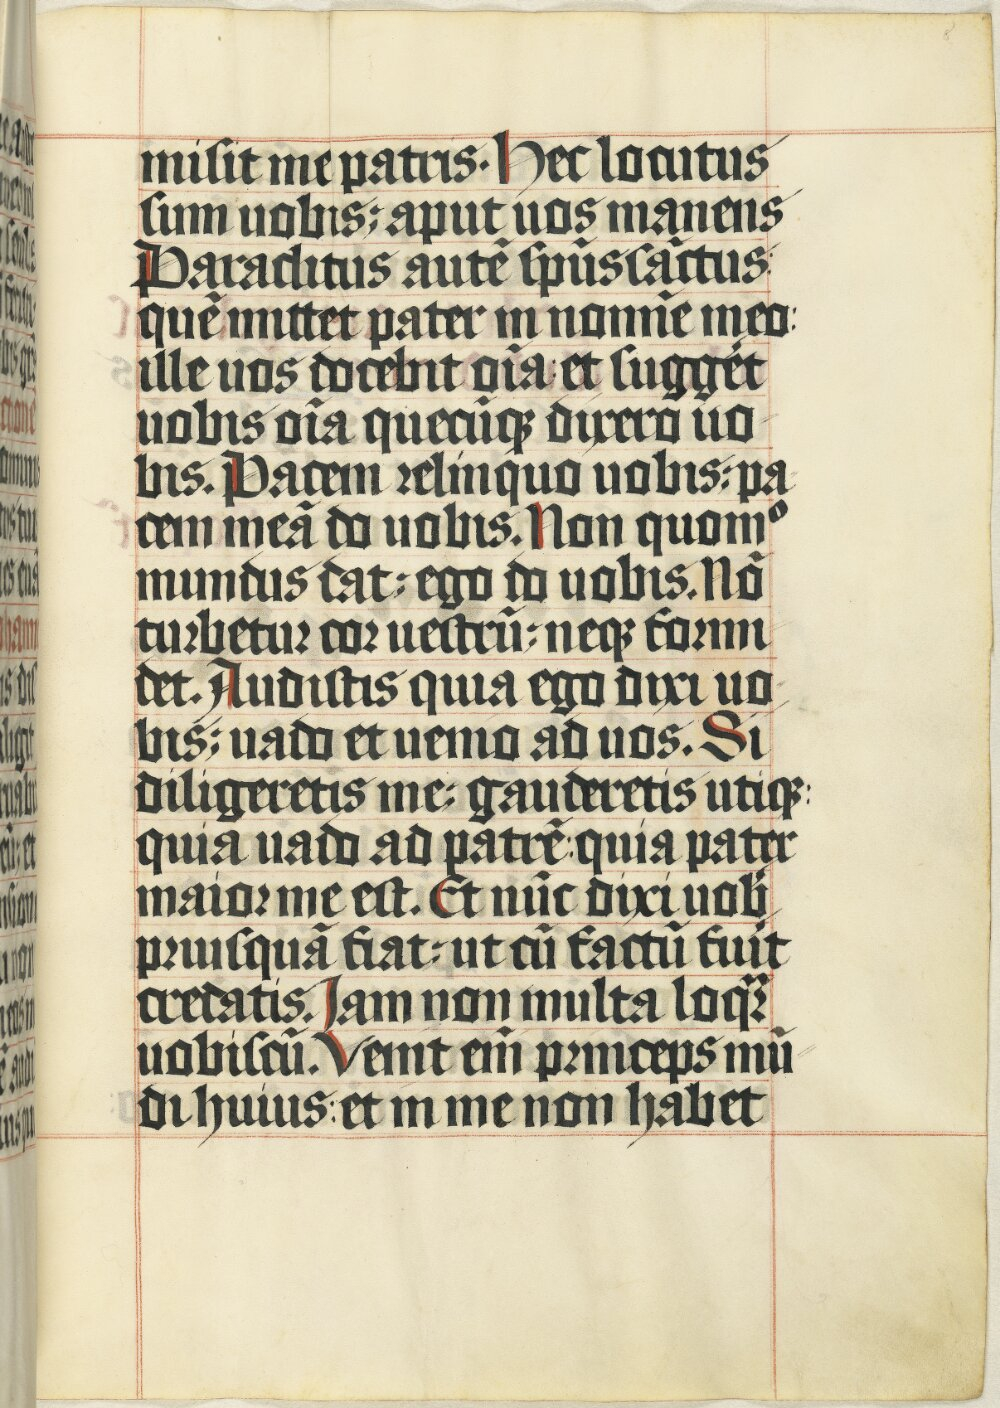 misit me patris. Hec locutus
sum uobis; aput uos manens
Paraclitus autē spūs sāctus:
quē mittet pater in nomīe meo:
ille uos docebit oīa: et suggēt
uobis oīa quecūqꝫ dixero uo
bis. Pacem relinquo uobis: pa
cem meā do uobis. Non quomº
mundus dat: ego do uobis. Nō
turbetur cor uestrū: neqꝫ formi
det. Audistis quia ego dixi uo
bis; uado et uenio ad uos. Si
diligeretis me: gauderetis utiqꝫ:
quia uado ad patrē: quia pater
maior me est. Et nūc dixi uob̄
priusquā fiat: ut cū factū fuit
credatis. Iam non multa loqᷣ
uobiscū. Venit em̄ princeps mū
di huius: et in me non habet